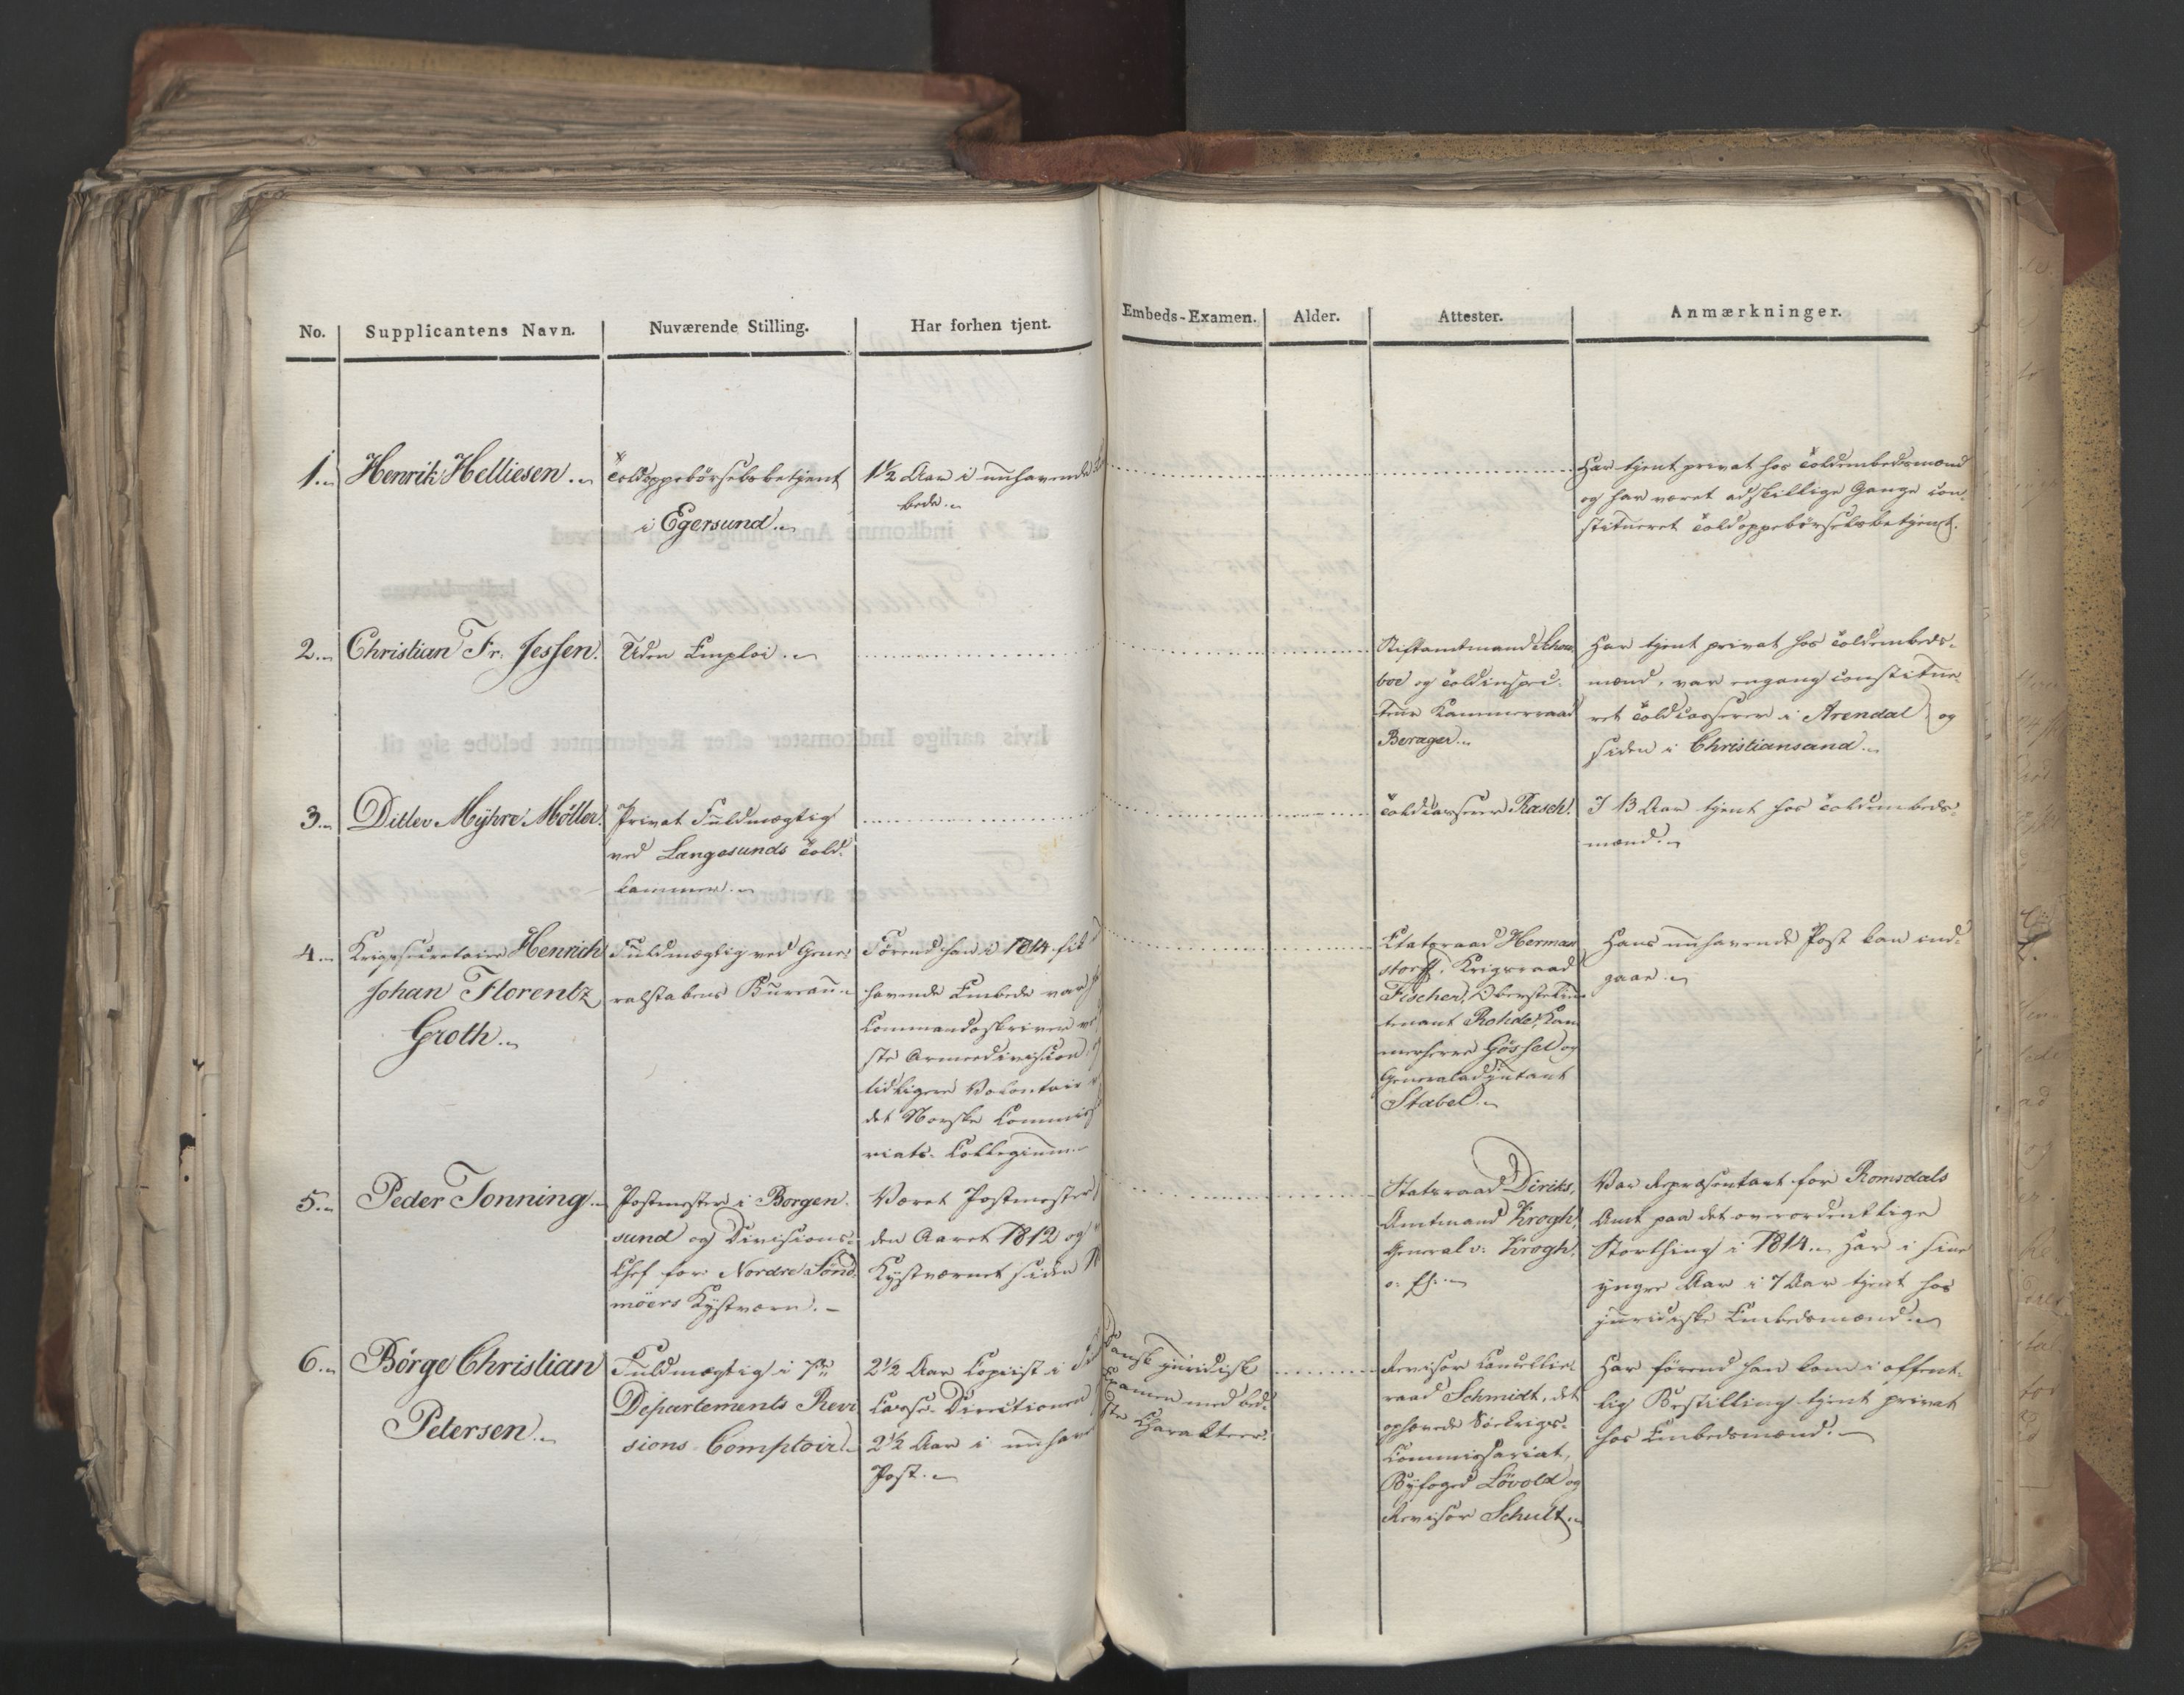 No. Supplicantens Navn. Nuværende Stilling. Har forhen tjent. Embeds-Examen. Alder. Attester. Anmærkninger.
1. Henrik Helliesen.
Toldoppebørselsbetjent
i Egersund.
1½ Aar i innhavende
bede.
Har tjent privat hos Toldembedsmænd
og har været adskillige Gange con-
stitueret Toldoppebørselsbetjent.
2. Christian Fr. Jessen.
Uden Emploi.
Stiftamtmand
boe og Toldinspec-
teur Kammerraad
Berager.
Har tjent privat hos Toldembeds-
mænd, var engang constitue-
ret Toldcasserer i Arendal og
siden i Christiansand.
3. Ditlev Myhre Møller.
Privat Fuldmægtig
ved Langesunds Told-
kammer.
Toldcasserer Rasch.
I 13 Aar tjent hos Toldembeds-
mænd.
4. Krigssecretaire Henrich
Johan Florentz
Groth.
Fuldmægtig ved Gene-
ralstabens Bureau.
Førend han i 1814 fik
havende Embede var
Commandoskriver
ste Armeedivision
tidligere Volontair
det Norske Commis
riats-Collegium.
Etatsraad Herman
storff, Krigsraad
Fischer, Oberstlieu
tenant Rohde, Kam
merherre Gössel og
Generaladjutant
Stabel.
Hans innhavende Post kan ind-
gaae.
5. Peder Tonning.
Postmester i Borgen-
sund og Divisions-
Chef for Nordre Sønd-
möers Kystværn.
Været Postmester
den Aaret 1812 og
Kystværnet siden
Statsraad Diriks,
Amtmand Krogh,
General v: Krogh,
o. fl.
Var Repræsentant for Romsdals
Amt paa det overordentlige
Storthing i 1814. Har i sine
yngre Aar i 7 Aar tjent hos
juridiske Embedsmænd.
6. Børge Christian
Petersen.
Fuldmægtig i 7de
Departements Revi
sions-Comptoir.
2½ Aar Copiist i
Casse-Directionen
2½ Aar i innhav
Post.
Dansk juridisk
Examen med bed-
ste Charakteer.
Revisor Cancellie-
raad Schmidt, det
ophævede Søekrigs-
Commissariat,
Byfoged Lövold og
Revisor Schult.
Har førend han kom i offent-
lig Bestilling tjent privat
hos Embedsmænd.